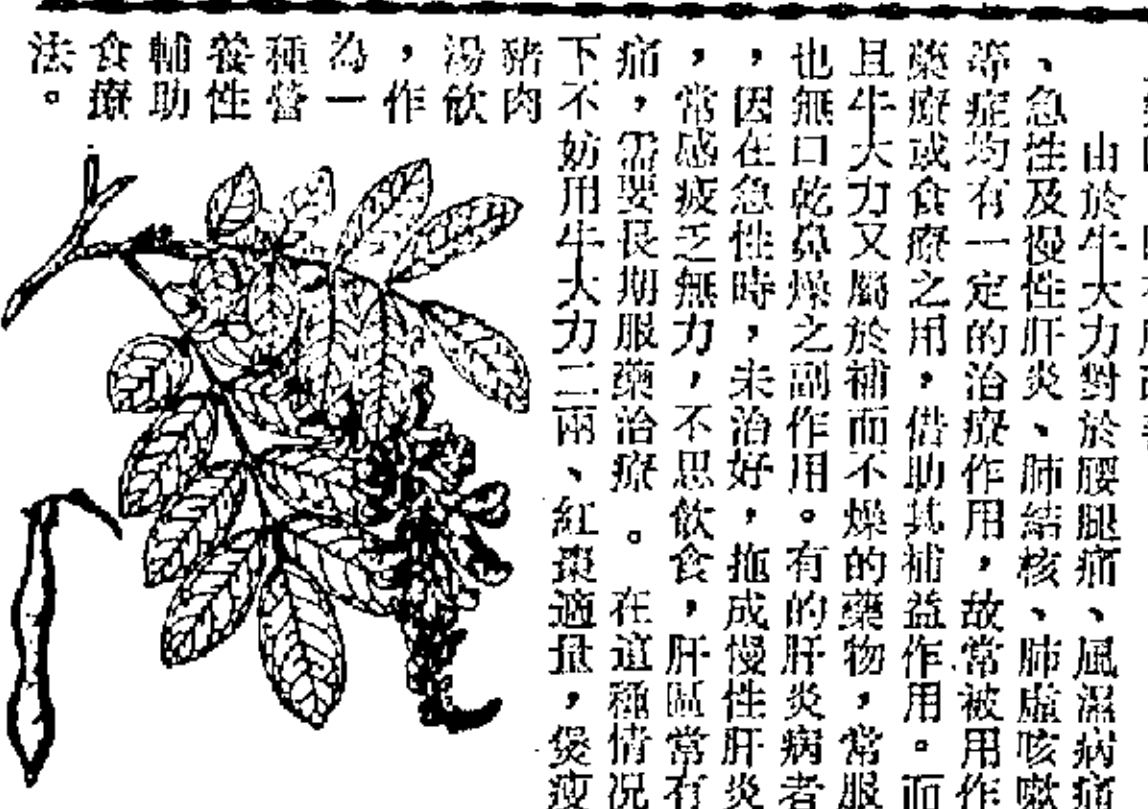 由於牛大力對於腰腿痛、風濕病痛
、急性及慢性肝炎、肺結核、肺虛咳嗽
等症均有一定的治療作用，故常被用作
藥療或食療之用，借助其補益作用。而
且牛大力又屬於補而不燥的藥物，常服
也無口乾鼻燥之副作用。有的肝炎病者
，因在急性時，未治好，拖成慢性肝炎
，常感疲乏無力，不思飲食，肝區常有
痛，需要長期服藥治療。在這種情况
下不妨用牛大力二兩、紅棗適量，煲瘦
豬肉
湯飲
，作
為一
種營
養性
輔助
食療
法。